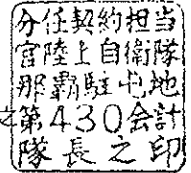 分任契約担当
官陸上自衛隊
那覇駐屯地
第430会計
隊長之印